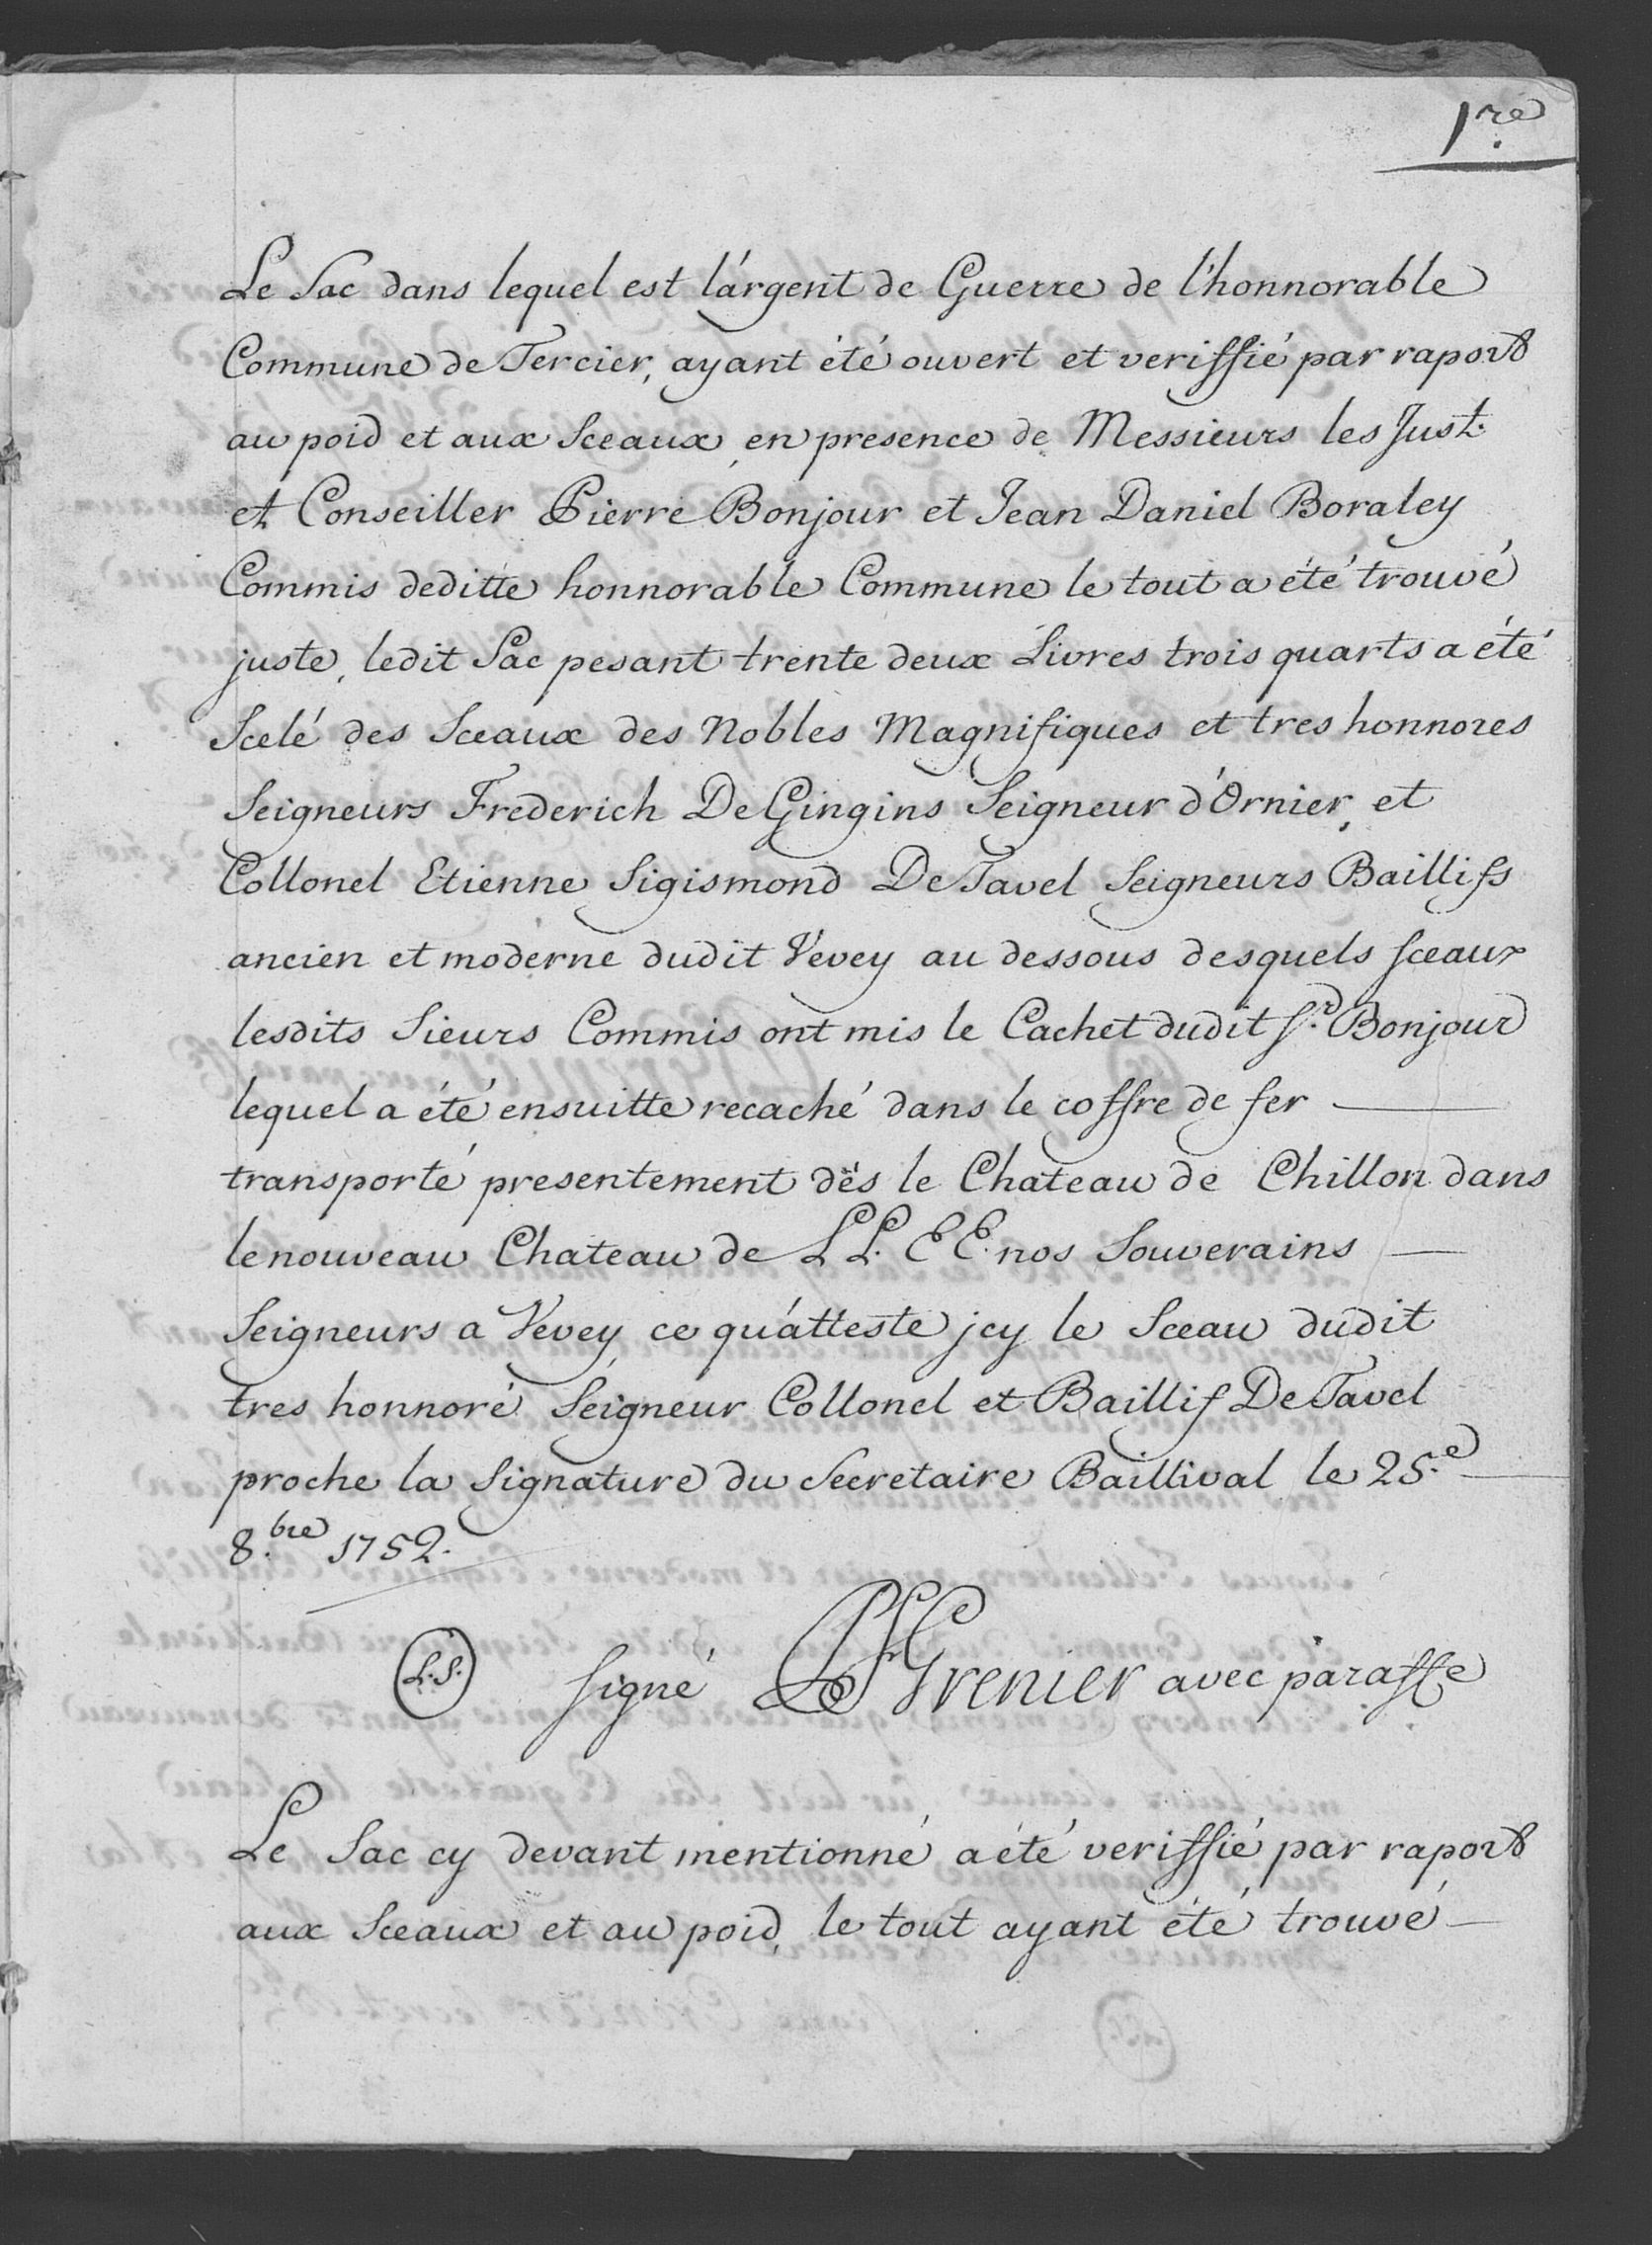 1.re
Le Sac dans lequel est l'argent de Guerre de l'honnorable
Commune de Tercier, ayant été ouvert et veriffié par raport
au poid et aux Sceaux, en presence de Messieurs les Just.
et Conseiller Pierre Bonjour et Jean Daniel Boraley
Commis deditte honnorable Commune le tout a été trouvé
juste, ledit Sac pesant trente deux Livres trois quarts a été
Scelé des Sceaux des Nobles Magnifiques et tres honnores
Seigneurs Frederich De Gingins Seigneur d'Ornier, et
Collonel Etienne Sigismond De Tavel Seigneurs Baillifs
ancien et moderne dudit Vevey au dessous desquels sceaux
lesdits Sieurs Commis ont mis le Cachet dudit S.r Bonjour
lequel a été ensuitte recaché dans le coffre de fer —
transporté presentement dès le Chateau de Chillon dans
le nouveau Chateau de LL. EE. nos Souverains —
Seigneurs a Vevey ce qu'atteste jcy le Sceau dudit
tres honnoré Seigneur Collonel et Baillif De Tavel
proche la Signature du Secretaire Baillival le 25.e —
8.bre 1752.
(L.S.) signé Grenier avec paraffe
Le Sac cy devant mentionné a été veriffié par raport
aux Sceaux et au poid, le tout ayant été trouvé —